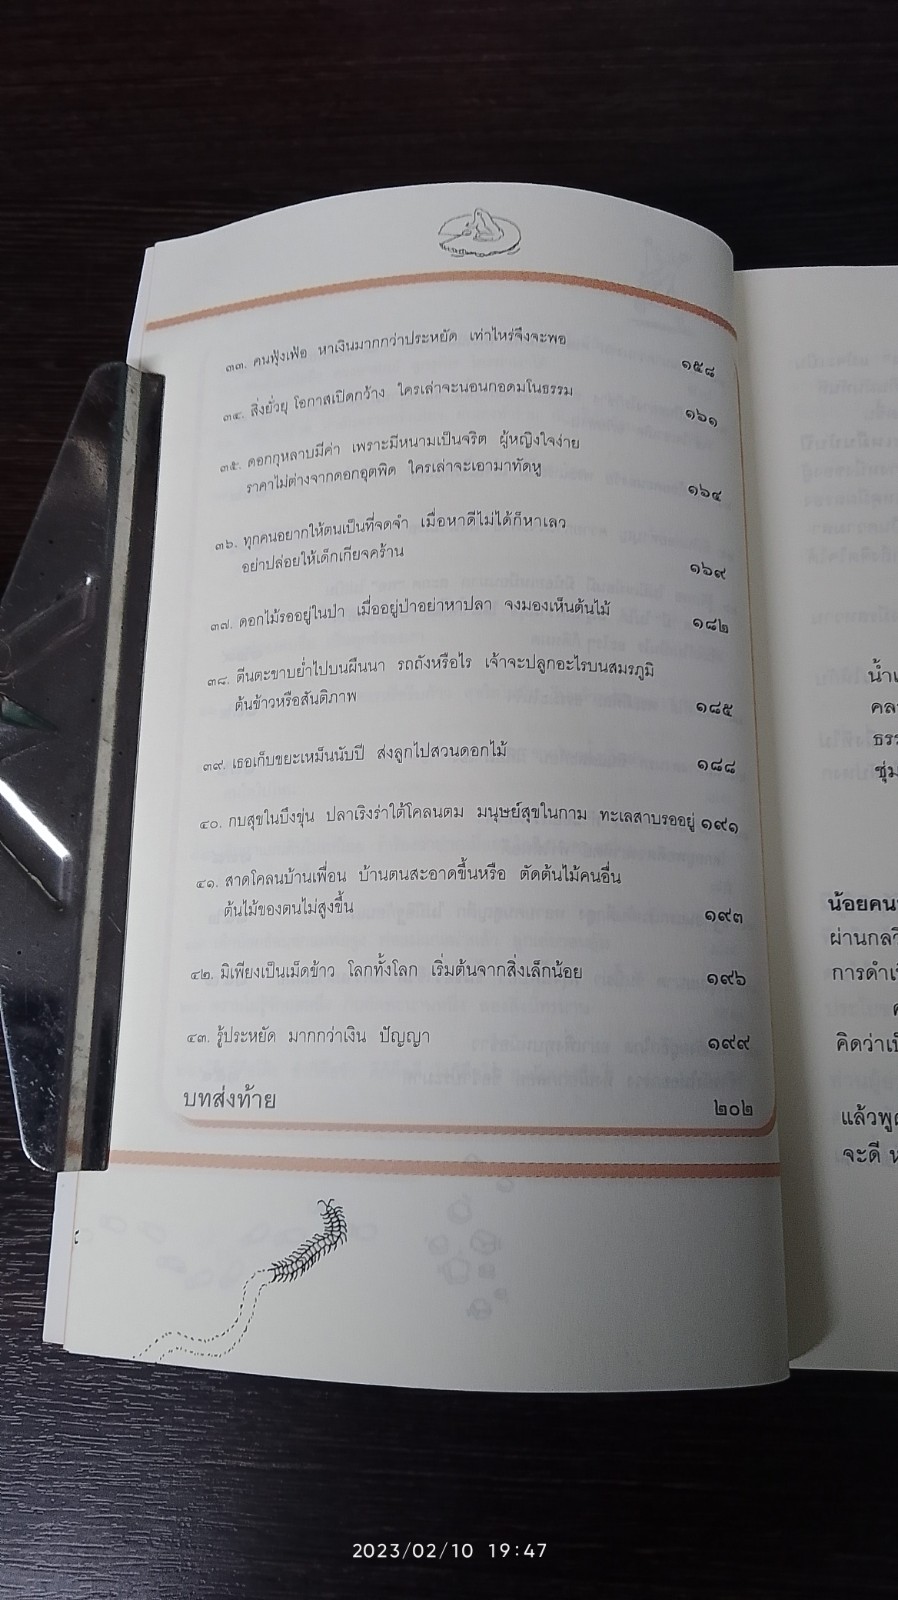 ๓๓. คนฟุ้งเฟ้อ หาเงินมากกว่าประหยัด เท่าไหร่จึงจะพอ ๑๕๘
๓๔. สิ่งยั่วยุ โอกาสเปิดกว้าง ใครเล่าจะนอนกอดมโนธรรม ๑๖๑
๓๕. ดอกกุหลาบมีค่า เพราะมีหนามเป็นจริต ผู้หญิงใจง่าย
ราคาไม่ต่างจากดอกอุตพิด ใครเล่าจะเอามาทัดหู ๑๖๔
๓๖. ทุกคนอยากให้ตนเป็นที่จดจำ เมื่อหาดีไม่ได้ก็หาเลว
อย่าปล่อยให้เด็กเกียจคร้าน ๑๖๙
๓๗. ดอกไม้รออยู่ในป่า เมื่ออยู่ป่าอย่าหาปลา จงมองเห็นต้นไม้ ๑๘๒
๓๘. ตีนตะขาบย่ำไปบนผืนนา รถถังหรือไร เจ้าจะปลูกอะไรบนสมรภูมิ
ต้นข้าวหรือสันติภาพ ๑๘๕
๓๙. เธอเก็บขยะเหม็นนับปี ส่งลูกไปสวนดอกไม้ ๑๘๘
๔๐. กบสุขในบึงขุ่น ปลาเริงร่าใต้โคลนตม มนุษย์สุขในกาม ทะเลสาบรออยู่ ๑๙๑
๔๑. สาดโคลนบ้านเพื่อน บ้านตนสะอาดขึ้นหรือ ตัดต้นไม้คนอื่น
ต้นไม้ของตนไม่สูงขึ้น ๑๙๓
๔๒. มิเพียงเป็นเม็ดข้าว โลกทั้งโลก เริ่มต้นจากสิ่งเล็กน้อย ๑๙๖
๔๓. รู้ประหยัด มากกว่าเงิน ปัญญา ๑๙๙
บทส่งท้าย ๒๐๒
น้อยคน
ผ่านกล
การดำเ
คิดว่าเ
แล้วพู
จะดี
2023/02/10 19:47